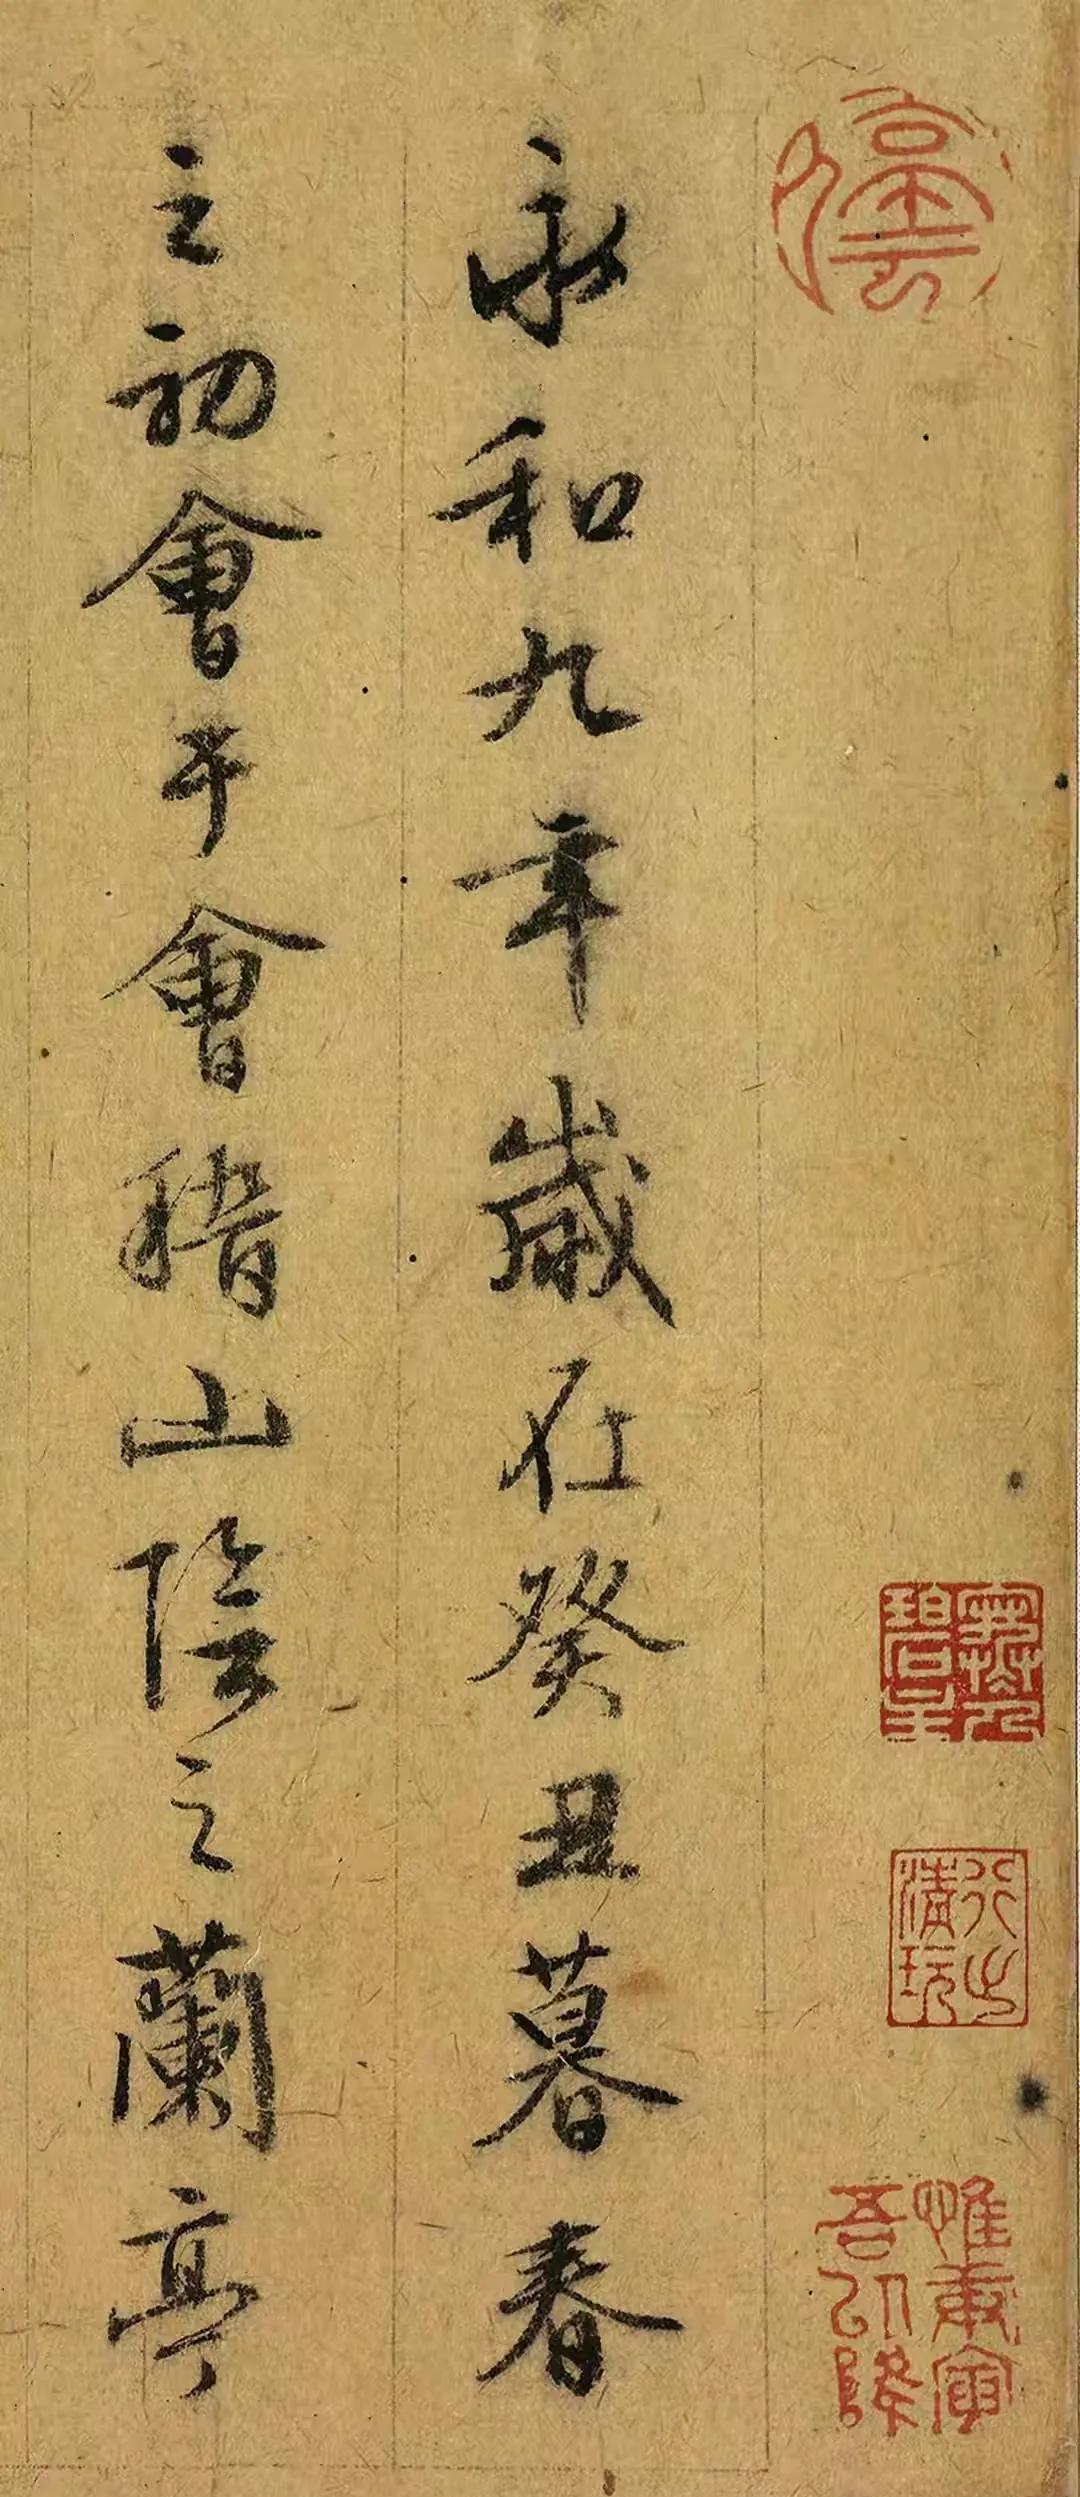 惟庚寅
吾以降
永和九年歲在癸丑暮春
之初會于會稽山陰之蘭亭